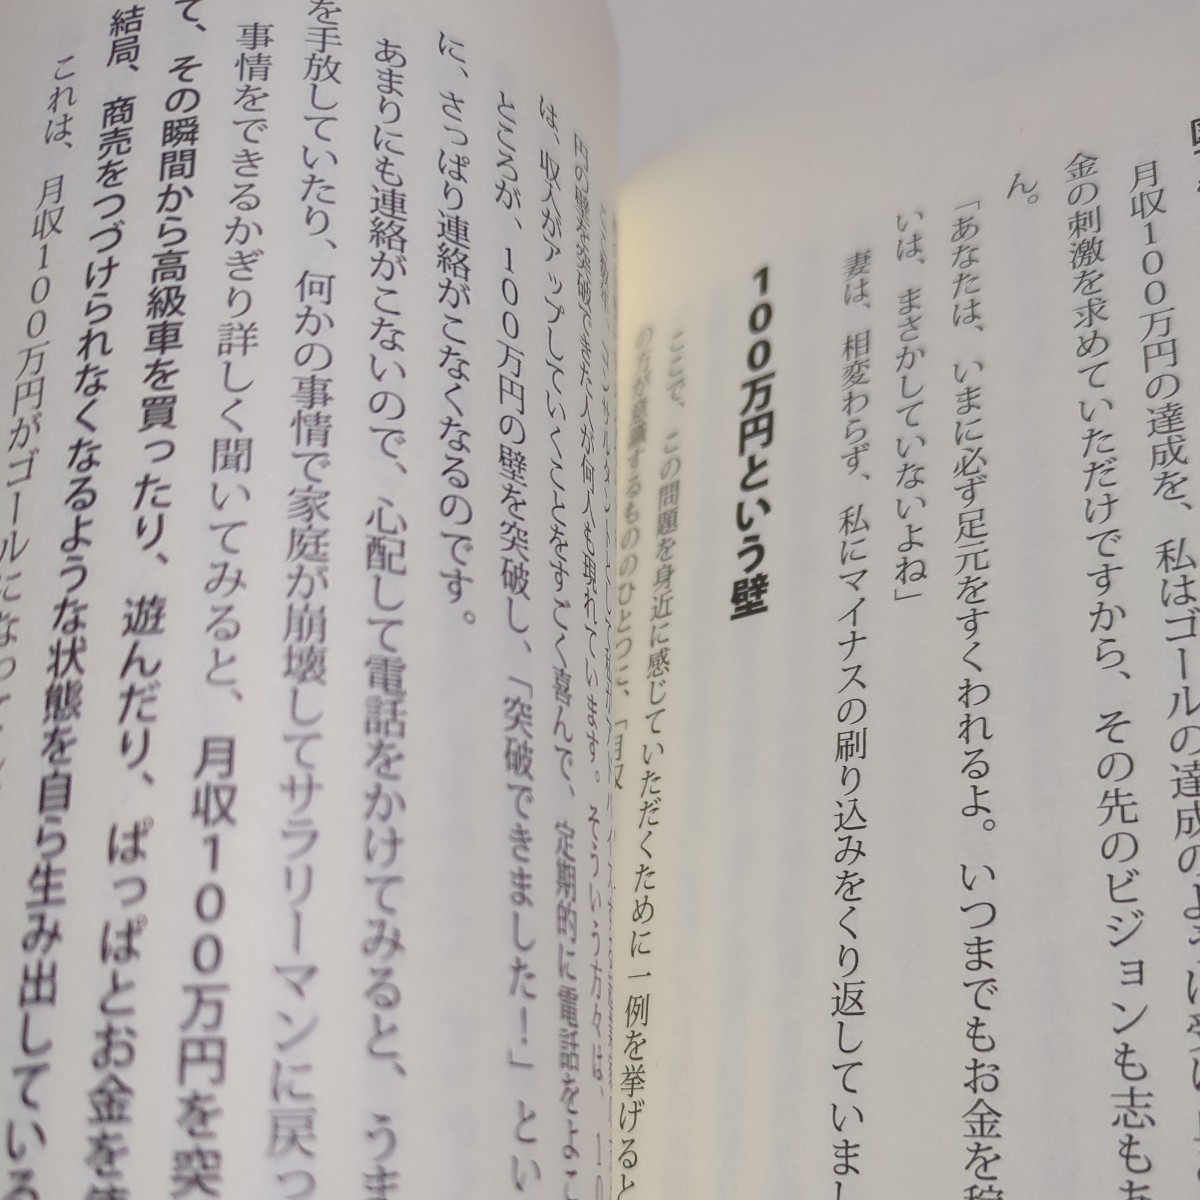 月収100万円の達成を、私はゴールの達成のように受け
金の刺激を求めていただけですから、その先のビジョンも志も
ん。
「あなたは、いまに必ず足元をすくわれるよ。いつまでもお金を稼
いは、まさかしていないよね」
妻は、相変わらず、私にマイナスの刷り込みをくり返していまし
100万円という壁
ここで、この問題を身近に感じていただくために一例を挙げると
の方が意識するもののひとつに、「月収
円の壁を突破できた人が何人も現れています。そういう方々は、10
は、収入がアップしていくことをすごく喜んで、定期的に電話をよこ
ところが、100万円の壁を突破し、「突破できました！」とい
に、さっぱり連絡がこなくなるのです。
あまりにも連絡がこないので、心配して電話をかけてみると、うま
を手放していたり、何かの事情で家庭が崩壊してサラリーマンに戻っ
事情をできるかぎり詳しく聞いてみると、月収100万円を突
て、その瞬間から高級車を買ったり、遊んだり、ぱっぱとお金を使
結局、商売をつづけられなくなるような状態を自ら生み出している
これは、月収100万円がゴールになって